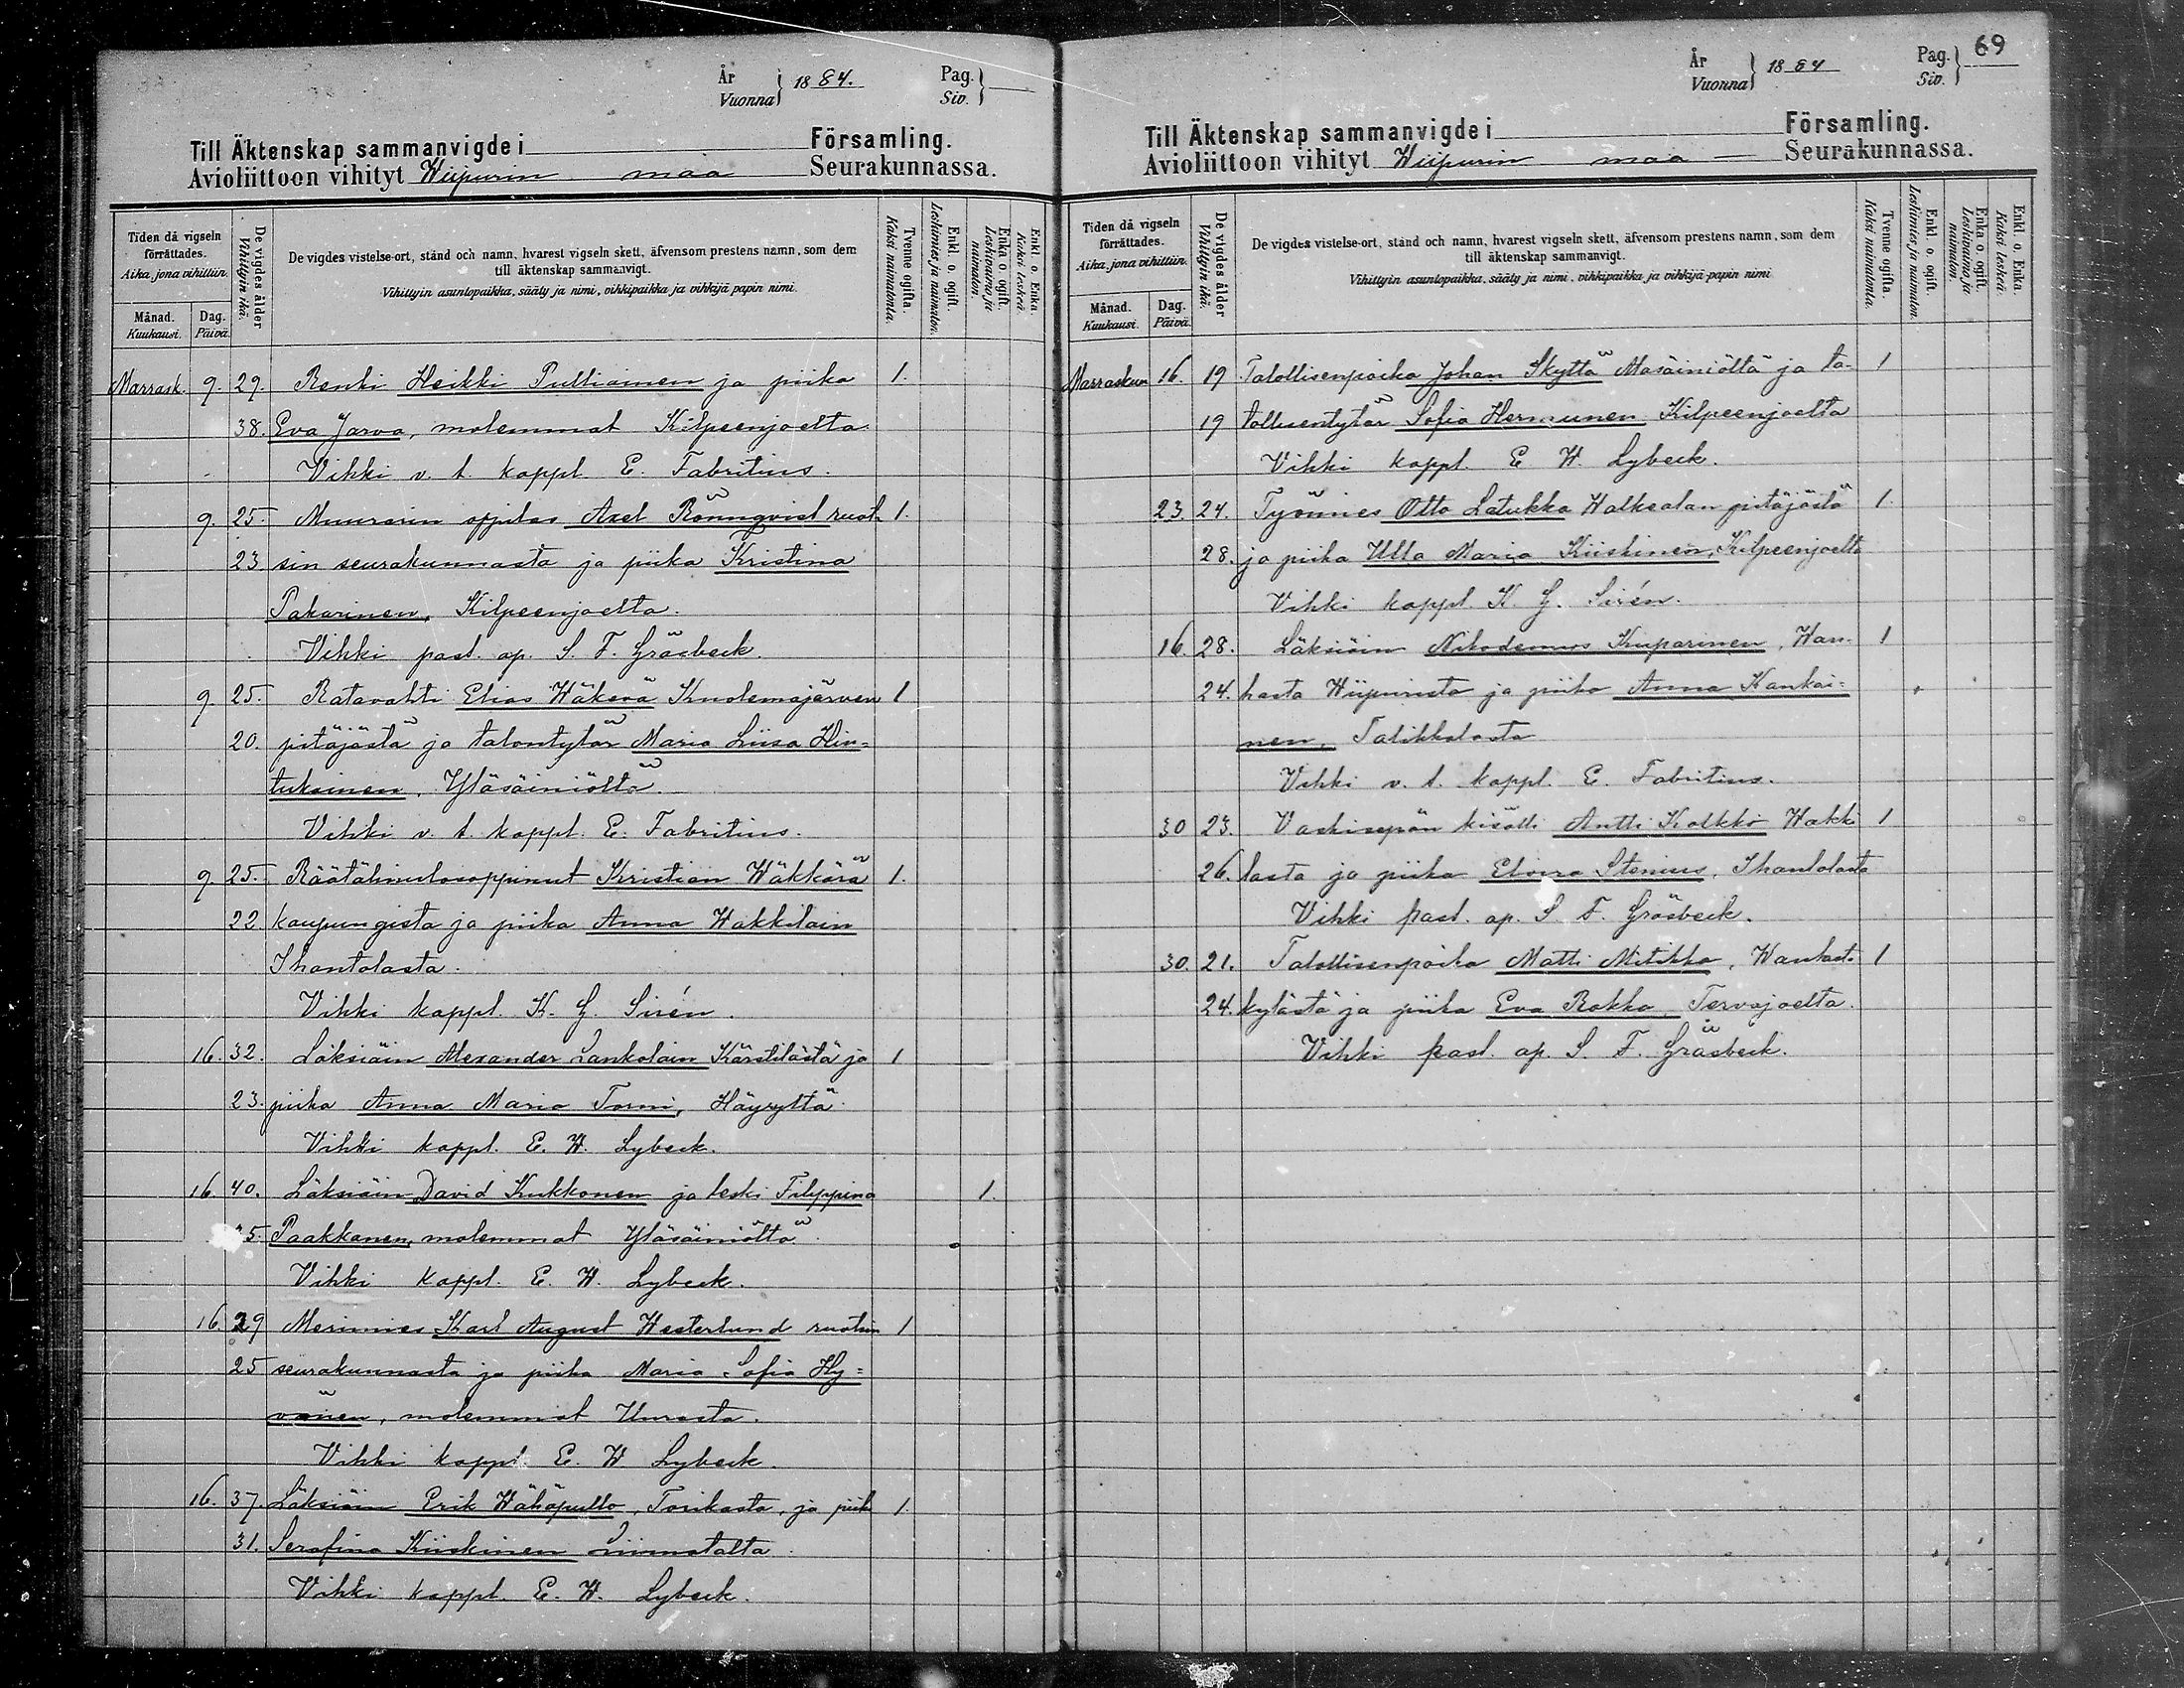 År
Vuonna
1884.
Pag.
Siv.
Till Äktenskap sammanvigde i Församling.
Avioliittoon vihityt Wiipurin maa Seurakunnassa.
Tiden då vigseln förrättades.
Aika, jona vihittiin.
Månad.
Kuukausi.
Dag.
Päivä.
De vigdes ålder
Vihittyin ikä.
De vigdes vistelse-ort, stånd och namn, hvarest vigseln skett, äfvensom prestens namn, som dem
till äktenskap sammanvigt.
Vihittyin asuntopaikka, sääty ja nimi, vihkipaikka ja vihkijä-papin nimi.
Tvenne ogifta.
Kaksi naimatonta.
Enkl. o. ogift.
Leskimies ja naimaton.
Enka o. ogift.
Leskivaimo ja naimaton.
Enkl. o. Enka.
Kaksi leskeä.
Marrask. 9. 29. Renki Heikki Pulliainen ja piika 1.
38. Eva Jarva, molemmat Kilpeenjoelta.
Vihki v. t. kappl. E. Fabritius.
9. 25. Muurarin oppilas Axel Rönnqvist ruot- 1.
23 sin seurakunnasta ja piika Kristina
Pakarinen, Kilpeenjoelta.
Vihki past. ap. S. F. Gräsbeck.
9. 25. Ratavahti Elias Wäkevä Kuolemajärven 1
20. pitäjästä ja talontytär Maria Liisa Hin=
tuksinen, Yläsäiniöltä.
Vihki v. t. kappl. E. Fabritius.
9. 25. Räätälinulosoppinut Kristian Wäkkärä 1.
22 kaupungista ja piika Anna Wakkilain
Ihantolasta.
Vihki kappl. K. G. Sirén.
16. 32. Läksiäin Alexander Lankolain Kärstilästä ja 1
23. piika Anna Maria Tormi, Häyryltä.
Vihki kappl. E. W. Lybeck.
16. 40. Läksiäin David Kukkonen ja leski Filippina 1.
5. Paakkanen, molemmat Yläsäiniöltä.
Vihki kappl. E. W. Lybeck.
16. 29 Merimies Karl August Westerlund ruotsin 1
25 seurakunnasta ja piika Maria Sofia Hy=
vönen, molemmat Uurasta.
Vihki kappl. E. W. Lybeck.
16. 37. Läksiäin Erik Wähäpullo, Torikasta, ja piik 1.
31. Serafina Kiiskinen Liimatalta.
Vihki kappl. E. W. Lybeck.
År
Vuonna
1884
Pag.
Siv.
69
Till Äktenskap sammanvigde i Församling.
Avioliittoon vihityt Wiipurin maa — Seurakunnassa.
Tiden då vigseln förrättades.
Aika, jona vihittiin.
Månad.
Kuukausi.
Dag.
Päivä.
De vigdes ålder
Vihittyin ikä.
De vigdes vistelse-ort, stånd och namn, hvarest vigseln skett, äfvensom prestens namn, som dem
till äktenskap sammanvigt.
Vihittyin asuntopaikka, sääty ja nimi, vihkipaikka ja vihkijä-papin nimi
Tvenne ogifta.
Kaksi naimatonta.
Enkl. o. ogift.
Leskimies ja naimaton.
Enka o. ogift.
Leskivaimo ja naimaton.
Enkl. o. Enka.
Kaksi leskeä.
Marraskuu 16. 19 Talollisenpoika Johan Skyttä Alasäiniöltä ja ta- 1
19 lollisentytär Sofia Hermunen Kilpeenjoelta
Vihki kappl. E. W. Lybeck.
23. 24. Työmies Otto Latukka Walkealan pitäjästä 1.
28. ja piika Ulla Maria Kiiskinen, Kilpeenjoelta
Vihki kappl. K. G. Sirén.
16. 28. Läksiäin Nikodemus Kuparinen, Wan- 1
24. hasta Wiipurista ja piika Anna Kankai=
nen, Talikkalasta
Vihki v. t. kappl. E. Fabritius.
30 23. Vaskisepän kisälli Antti Kolkki Wakki 1
26. lasta ja piika Elvira Stenius, Ihantolasta
Vihki past. ap. S. F. Gräsbeck.
30. 21. Talollisenpoika Matti Mitikka, Wanhast. 1
24. kylästä ja piika Eva Rokka, Tervajoelta.
Vihki past. ap. S. F. Gräsbeck.